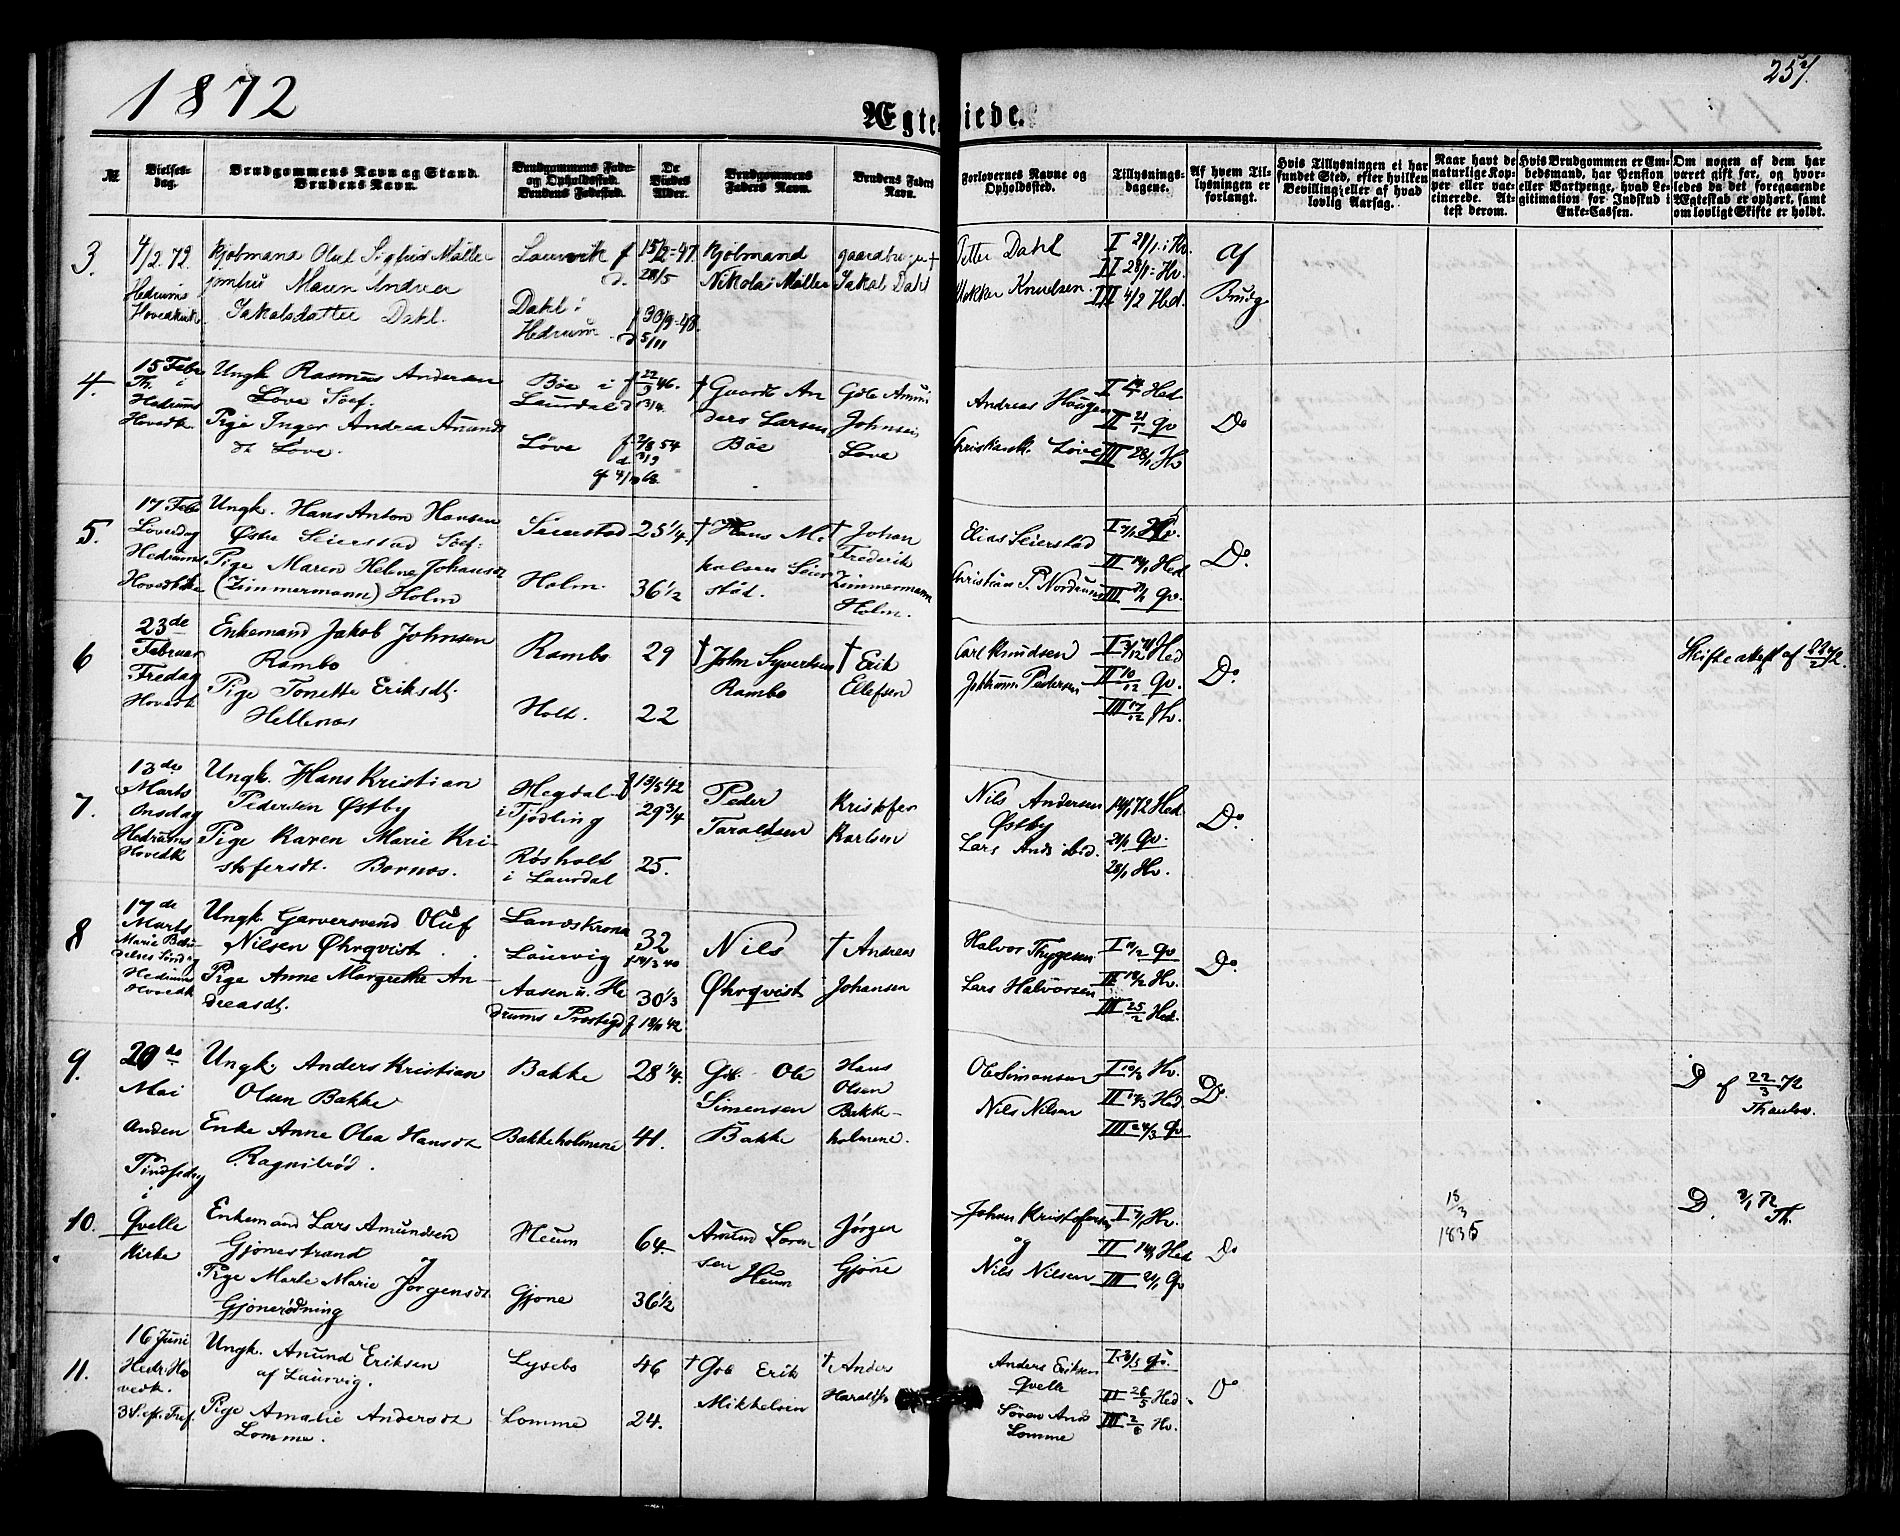 1872
257.
Ægteviede.
№
Vielses-
dag.
Brudgommens Navn og Stand.
Brudens Navn.
Brudgommens Føde-
og Opholdssted.
Brudens Fødested.
De
Viedes
Alder.
Brudgommens
Faders Navn.
Brudens Faders
Navn.
Forlovernes Navne og
Opholdssted.
Tillysnings-
dagene.
Af hvem Til-
lysningen er
forlangt.
Hvis Tillysningen ei har
fundet Sted, efter hvilken
Bevilling eller af hvad
lovlig Aarsag.
Naar havt de
naturlige Kop-
per eller vac-
cinerede. At-
test derom.
Hvis Brudgommen er Em-
bedsmand, har Pension
eller Vartpenge, hvad Le-
gitimation for Indskud i
Enke-Cassen.
Om nogen af dem har
været gift før, og hvor-
ledes da det foregaaende
Ægteskab er ophørt, samt
om lovligt Skifte er holdt.
3.
4/2 72.
Hedrums
Hovedkirke
Kjøbmand Oluf Sigfus Møller
jomfru Maren Andrea
Jakobsdatter Dahl.
Laurvik f
d.
Dahl i
Hedrum
15/2-47.
28/5
f 30/9-48.
d 5/11
Kjøbmand
Nikolai Møller
gaardbruger †
Jakob Dahl
Petter Dahl
Knudsen
I 21/1 i Hv.
II 28/1 Hv.
III 4/2 Hed.
Af
Brudg
4.
15 Febr
Th. i
Hedrums
Hovedk.
Ungk. Rasmus Andersen
Løve Søef.
Pige Inger Andrea Anunds
dt Løve.
Bøe i
Laurdal
Løve
f 22/3 46.
f 2/8 54
d 3/9
† Gaardb An
ders Larsen
Bøe
Gdb Anund
Johnsen
Løve
Andreas Haugen
Løve
I 14/1 Hed
II 21/1 Qv
III 28/1 Hv
Do
5.
17 Febr
Løverdag
Hedrums
Hovedkirke
Ungk. Hans Anton Hansen
Østre Seierstad Søef.
Pige Maren Helene Johansdt
(Zimmermann) Holm
Seierstad
Holm.
25 1/4
36 1/2
† Hans Ni
kolsen Seier
stad.
† Johan
Frederik
Zimmermann
Holm.
Elias Seierstad
Christian P. Nordrum
I 7/1 Hv.
II 14/1 Hed
III 21/1 Qv.
Do.
6
23de
Februar
Fredag
Hovedk
Enkemand Jakob Johnsen
Rambo
Pige Tonette Eriksdt.
Hellenæs
Rambo
Holt.
29
22
† John Syvertsen
Rambo
† Erik
Ellefsen
Carl Knudsen
Johan Pedersen
I 3/12 71 Hed
II 10/12 Qv.
III 17/12 Hv.
Do.
Skifteattest af 22/2 72.
7.
13de
Marts
Onsdag
Hedrums
Hovedk
Ungk. Hans Kristian
Pedersen Østby
Pige Karen Marie Kri-
stofersdt. Bornæs.
Hegdal
i Tjødling
Røsholt
i Laurdal
f 13/5 42
29 3/4
25.
Peder
Taraldsen
Kristofer
Karlsen
Nils Andersen
Østby
Lars Ands ibid.
14/1 72 Hed
21/1 Qv.
28/1 Hv.
Do.
8
17de
Marts
Marie Bebu-
delses Søndag
Hedrums
Hovedk
Ungk. Garversvend Oluf
Nilsen Øhrqvist.
Pige Anne Margrethe An-
dreasdt.
Landskrona
Laurvig
Aasen u. He
drums Prestegd
32
f 14/3 40
30 1/3
f 18/11 42
Nils
Øhrqvist
† Andreas
Johansen
Halvor Thygesen
Lars Halvorsen
I 11/2 Qv
II 18/2 Hv.
III 25/2 Hed.
Do.
9.
20de
Mai
Anden
Pindsedag
i
Ungk. Anders Kristian
Olsen Bakke
Enke Anne Olea Hansdt
Ragnilrød.
Bakke
Bakkeholmene
28 1/4.
41.
Gb. Ole
Simensen
Bakke
Hans
Olsen
Bakke-
holmene.
Ole Simonsen
Nils Nilsen
I 10/3 Hv.
II 17/3 Hed.
III 24/3 Qv
Do.
D. af 22/3 72
Thaulow.
10.
Qvelle
Kirke
Enkemand Lars Amundsen
Gjønestrand
og
Pige Marte Marie Jørgensdt
Gjønerødning
Heum
Gjøne
64.
36 1/2
Amund Loren
sen
Heum
Jørgen
Gjøne
Johan Kristofersen
og
Nils Nilsen
I 7/1 Hv.
II 14/1 Hed
III 21/1 Qv
Do
18/3
1835
D. 3/1 72
Th.
11.
16 Juni
Hedr. Ho
vedk.
3 S. eft. Tref.
Ungk. Anund Eriksen
af Laurvig.
Pige Amalie Andersdt
Lomme.
Lysebo
Lomme
46
24.
† Gdb Erik
Mikkelsen
† Anders
Haralds
Anders Eriksen
Qvelle
Søren Ands
Lomme
I Qv.
II 26/5 Hed.
III 2/6 Hv.
Do